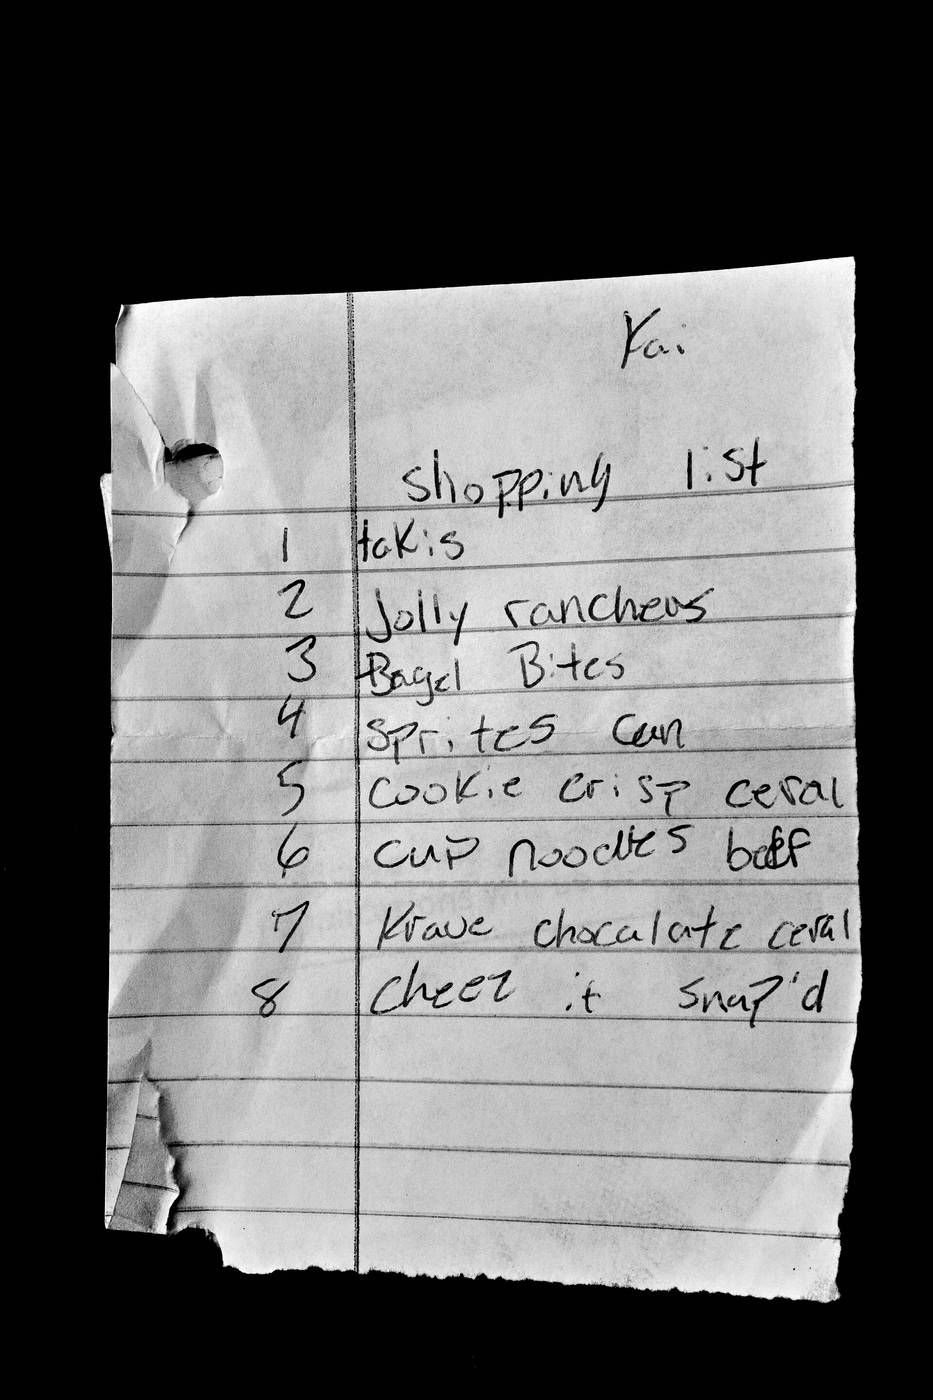 Kai
shopping list
1 takis
2 Jolly ranchers
3 Bagel Bites
4 Sprites can
5 cookie crisp ceral
6 cup noodles beef
7 Krave chocalate ceral
8 cheez it snap'd